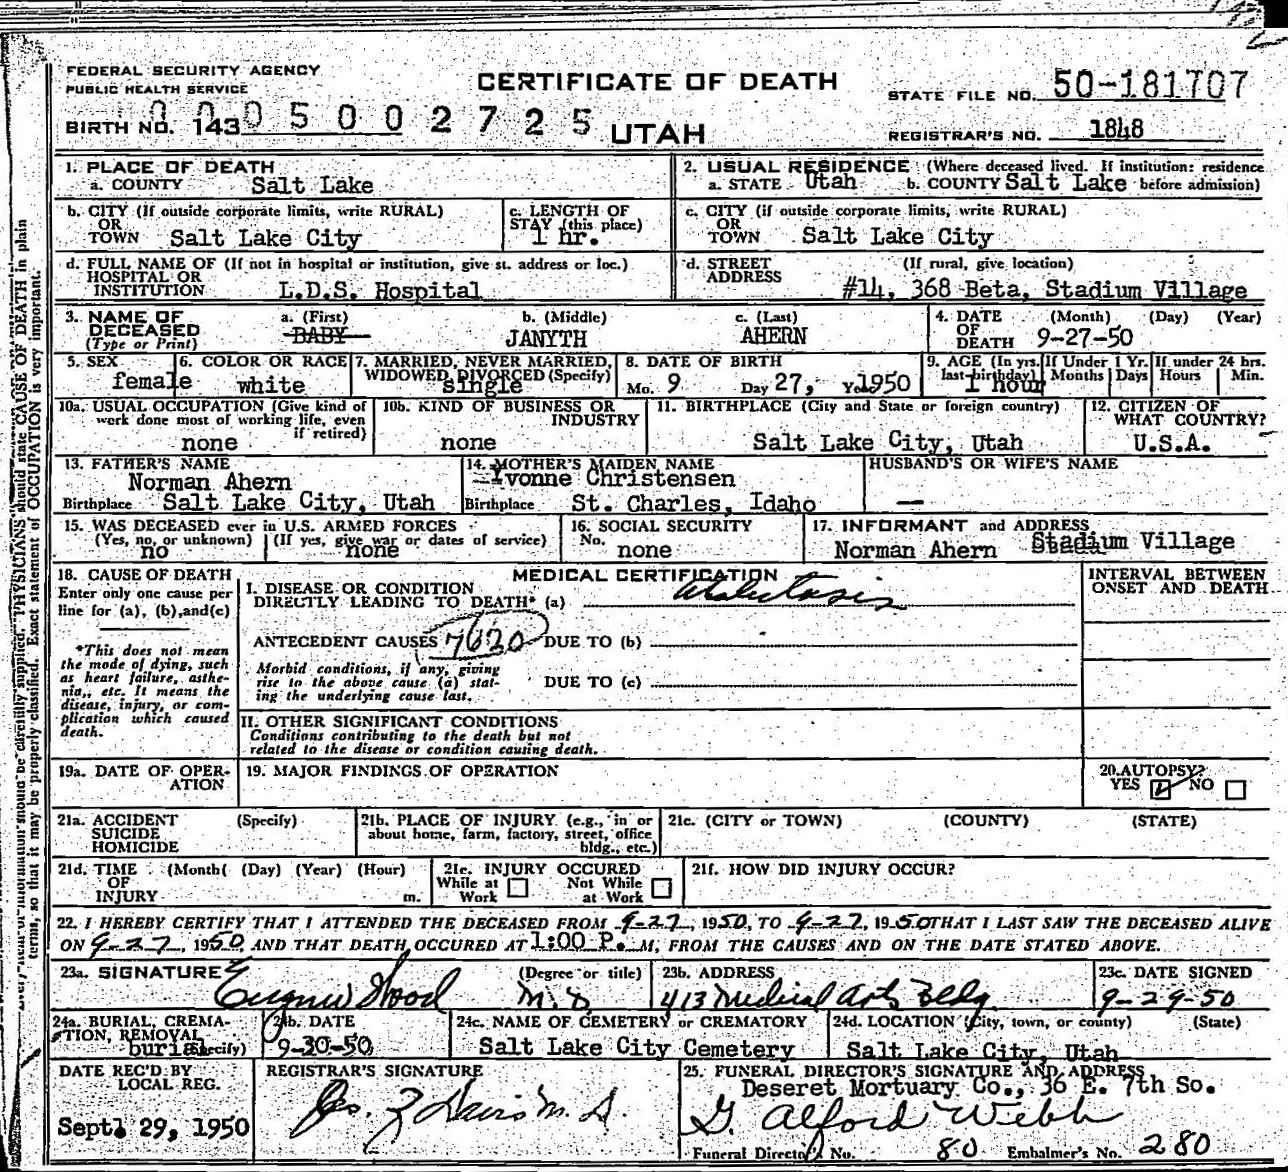 FEDERAL SECURITY AGENCY
PUBLIC HEALTH SERVICE
CERTIFICATE OF DEATH
STATE FILE NO. 50-181707
BIRTH NO. 143 0005002725
UTAH
REGISTRAR'S NO. 1848
1. PLACE OF DEATH
a. COUNTY Salt Lake
2. USUAL RESIDENCE (Where deceased lived. If institution: residence
a. STATE Utah b. COUNTY Salt Lake before admission)
b. CITY (If outside corporate limits, write RURAL)
OR
TOWN Salt Lake City
c. LENGTH OF
STAY (this place)
1 hr.
c. CITY (if outside corporate limits, write RURAL)
OR
TOWN Salt Lake City
d. FULL NAME OF (If not in hospital or institution, give st. address or loc.)
HOSPITAL OR
INSTITUTION L.D.S. Hospital
d. STREET (If rural, give location)
ADDRESS
#14, 368 Beta, Stadium Village
3. NAME OF
DECEASED
(Type or Print)
a. (First) b. (Middle) c. (Last)
BABY JANYTH AHERN
4. DATE (Month) (Day) (Year)
OF
DEATH 9-27-50
5. SEX
female
6. COLOR OR RACE
white
7. MARRIED, NEVER MARRIED,
WIDOWED, DIVORCED (Specify)
single
8. DATE OF BIRTH
Mo. 9 Day 27, Yr. 1950
9. AGE (In yrs. last birthday) If Under 1 Yr. If under 24 hrs.
Months Days Hours Min.
1 hour
10a. USUAL OCCUPATION (Give kind of
work done most of working life, even
if retired)
none
10b. KIND OF BUSINESS OR
INDUSTRY
none
11. BIRTHPLACE (City and State or foreign country)
Salt Lake City, Utah
12. CITIZEN OF
WHAT COUNTRY?
U.S.A.
13. FATHER'S NAME
Norman Ahern
Birthplace Salt Lake City, Utah
14. MOTHER'S MAIDEN NAME
Yvonne Christensen
Birthplace St. Charles, Idaho
HUSBAND'S OR WIFE'S NAME
—
15. WAS DECEASED ever in U.S. ARMED FORCES
(Yes, no, or unknown) (If yes, give war or dates of service)
no none
16. SOCIAL SECURITY
No. none
17. INFORMANT and ADDRESS
Norman Ahern Stadium Village
18. CAUSE OF DEATH
Enter only one cause per
line for (a), (b), and (c)
*This does not mean
the mode of dying, such
as heart failure, asthe-
nia, etc. It means the
disease, injury, or com-
plication which caused
death.
MEDICAL CERTIFICATION
I. DISEASE OR CONDITION
DIRECTLY LEADING TO DEATH* (a) Atelectasis
ANTECEDENT CAUSES 7620 DUE TO (b)
Morbid conditions, if any, giving
rise to the above cause (a) stat-
ing the underlying cause last.
DUE TO (c)
II. OTHER SIGNIFICANT CONDITIONS
Conditions contributing to the death but not
related to the disease or condition causing death.
INTERVAL BETWEEN
ONSET AND DEATH
19a. DATE OF OPER-
ATION
19. MAJOR FINDINGS OF OPERATION
20. AUTOPSY?
YES NO
21a. ACCIDENT (Specify)
SUICIDE
HOMICIDE
21b. PLACE OF INJURY (e.g., in or
about home, farm, factory, street, office
bldg., etc.)
21c. (CITY or TOWN) (COUNTY) (STATE)
21d. TIME (Month( (Day) (Year) (Hour)
OF
INJURY m.
21e. INJURY OCCURED
While at Not While
Work at Work
21f. HOW DID INJURY OCCUR?
22. I HEREBY CERTIFY THAT I ATTENDED THE DECEASED FROM 9-27, 1950, TO 9-27, 1950 THAT I LAST SAW THE DECEASED ALIVE
ON 9-27, 1950, AND THAT DEATH OCCURED AT 1:00 P. M, FROM THE CAUSES AND ON THE DATE STATED ABOVE.
23a. SIGNATURE (Degree or title)
Eugene Wood M.D.
23b. ADDRESS
413 Medical Arts Bldg
23c. DATE SIGNED
9-29-50
24a. BURIAL, CREMA-
TION, REMOVAL
burial (Specify)
24b. DATE
9-30-50
24c. NAME OF CEMETERY or CREMATORY
Salt Lake City Cemetery
24d. LOCATION (City, town, or county) (State)
Salt Lake City, Utah
DATE REC'D BY
LOCAL REG.
Sept. 29, 1950
REGISTRAR'S SIGNATURE
25. FUNERAL DIRECTOR'S SIGNATURE AND ADDRESS
Deseret Mortuary Co., 36 E. 7th So.
G. Alford Webb
Funeral Director No. 80 Embalmer's No. 280
PHYSICIANS should state CAUSE OF DEATH in plain
terms, so that it may be properly classified. Exact statement of OCCUPATION is very important.